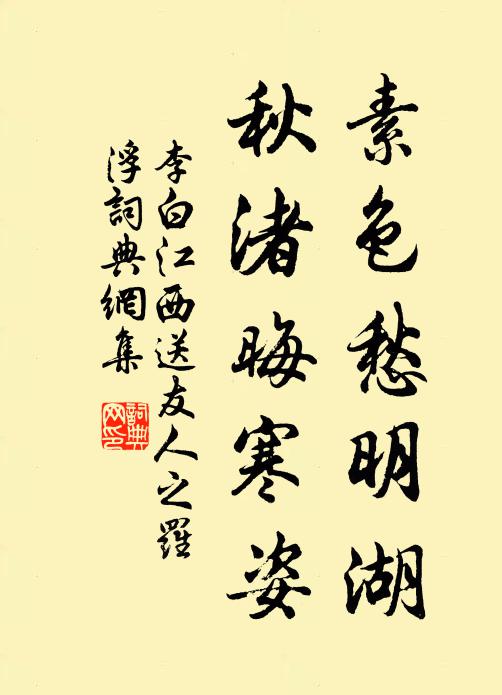 素色愁明湖
秋渚晦寒姿
李白江西送友人之羅
浮詞典網集
詞典
网印